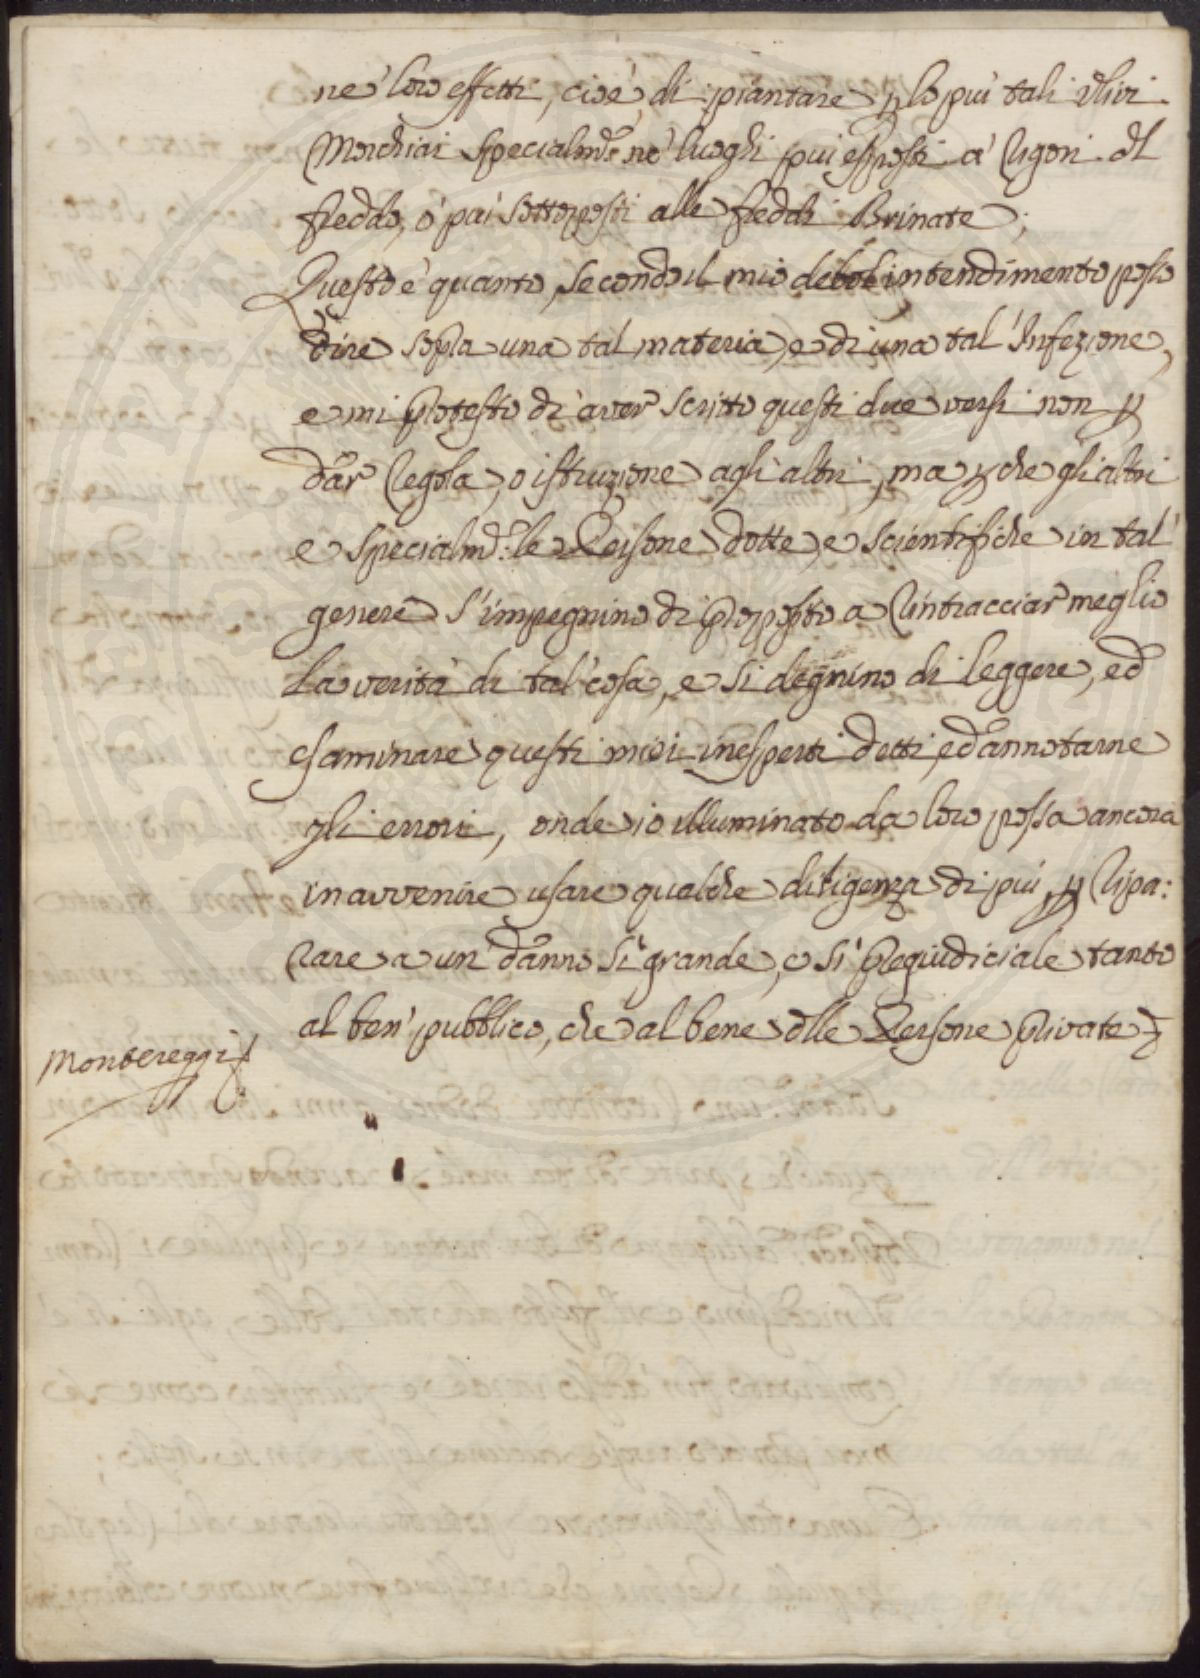 ne' loro effetti, cioè di piantare p lo più tali Ulivi
Morchiai specialmte ne' luoghi più esposti a' rigori del
freddo, o più sottoposti alle fredde Brinate;
Questo è quanto, secondo il mio debol intendimento posso
dire sopra una tal materia, e di una tal' Infezione,
e mi protesto di aver scritto questi due versi non p
dar regola, o istruzione agli altri, ma p che gli altri
e specialmte: le Persone dotte, e scientifiche in tal'
genere s'impegnino di proposto a rintracciar meglio
la verità di tal' cosa, e si degnino di leggere, ed
esaminare questi miei inesperti detti, ed annotarne
gli errori, onde io illuminato da loro possa ancora
in avvenire usare qualche diligenza di più, p ripa:
rare a un' danno sì grande, e sì pregiudiciale tanto
al ben' pubblico, che al bene delle Persone private
Montereggi